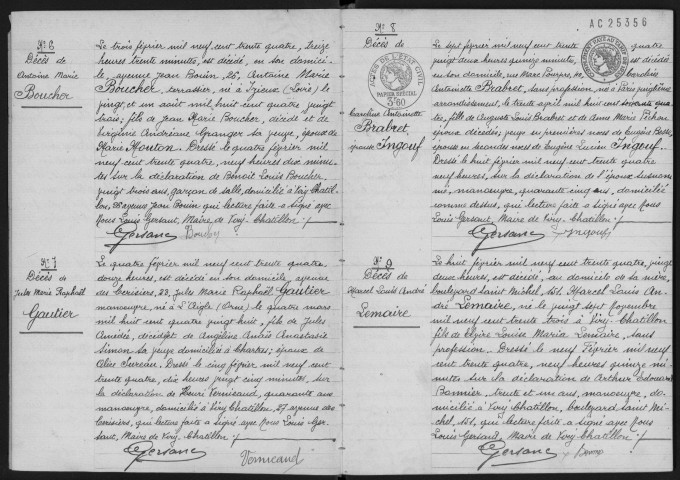 N° 6
Décès de
Antoine Marie
Boucher
Le trois février mil neuf cent trente quatre, treize
heures trente minutes, est décédé, en son domici-
le avenue Jean Bouin, 26, Antoine Marie
Boucher, terrassier, né à Izieux (Loire) le
vingt et un août mil huit cent quatre vingt
trois; fils de Jean Marie Boucher, décédé et de
Granger sa veuve, époux de
Marie Mouton. Dressé le quatre février mil
neuf cent trente quatre, neuf heures dix minu-
tes sur la déclaration de Benoit Louis Boucher
vingt trois ans, garçon de salle, domicilié à Viry Chatil-
lon, avenue Jean Bouin qui lecture faite a signé avec
Nous Louis Gersant, Maire de Viry-Chatillon :/
Gersant Boucher
N° 7
Décès de
Jules Marie Raphaël
Gautier
Le quatre février mil neuf cent trente quatre,
douze heures, est décédé en son domicile, avenue
des Cerisiers, 27, Jules Marie Raphaël Gautier
manoeuvre, né à L'Aigle (Orne) le quatre mars
mil huit cent quatre vingt huit, fils de Jules
Amédé, décédé et de Angéline Anaïs Anastasie
Simon sa veuve domiciliée à Chartres; époux de
Sureau. Dressé le cinq février mil neuf cent
trente quatre, dix heures vingt cinq minutes, sur
la déclaration de Henri Vermeaud, quarante ans
manoeuvre, domicilié à Viry Chatillon, 27 avenue des
Cerisiers, qui lecture faite a signé avec Nous Louis Ger-
sant, Maire de Viry-Chatillon :/
Gersant Vermeaud
AC 25356
N° 8
Décès de
Caroline Antoinette
Brabret
épouse Ingouf
ACTES DE L'ETAT CIVIL
PAPIER SPECIAL
3F60
Le sept février mil neuf cent trente quatre
vingt deux heures quinze minutes, est décédée
en son domicile, rue Marc Caroline
Antoinette Brabret, sans profession, née à Paris vingtième
arrondissement, le trente avril mil huit cent soixante qua-
tre, fille de Auguste Louis Brabret et de Anne Marie
époux décédés; veuve en premières noces de Eugène
épouse en secondes noces de Eugène Lucien Ingouf.
Dressé le huit février mil neuf cent trente quatre
neuf heures, sur la déclaration de l'époux susnom-
mé, manoeuvre, quarante cinq ans, domicilié
comme dessus, qui lecture faite a signé avec Nous
Louis Gersant, Maire de Viry-Chatillon :/
Gersant Ingouf
N° 9
Décès de
Marcel Louis André
Lemaire
Le huit février mil neuf cent trente quatre, vingt
deux heures, est décédé, au domicile de sa mère,
boulevard Saint Michel, 151, Marcel Louis An-
dré Lemaire, né le vingt sept Novembre
mil neuf cent trente trois à Viry-Chatillon
fils de Louise Maria Lemaire, sans
profession. Dressé le neuf Février mil neuf
cent trente quatre, neuf heures quinze mi-
nutes sur la déclaration de Arthur Edouard
Bonnier, trente et un ans, manoeuvre, do-
micilié à Viry Chatillon, boulevard Saint Mi-
chel, 151, qui lecture faite a signé avec Nous
Louis Gersant, Maire de Viry-Chatillon :/
Gersant